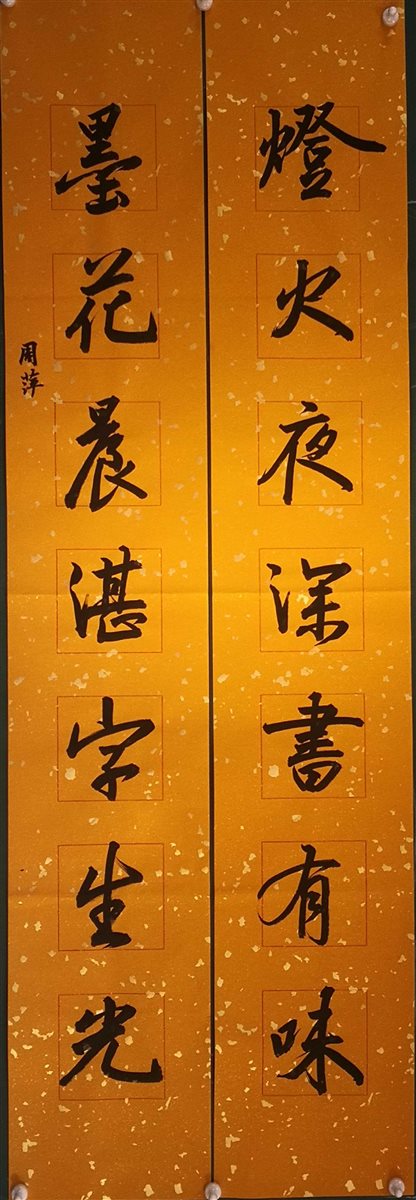 燈火夜深書有味
墨花晨湛字生光
周萍